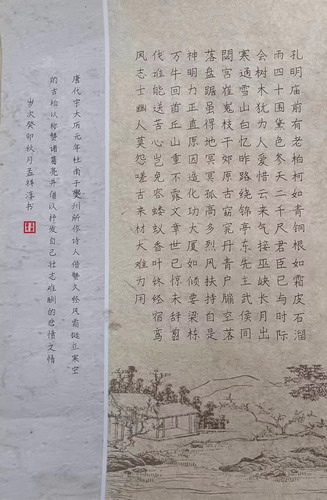 孔明庙前有老柏柯如青铜根如霜皮石溜
雨四十围黛色冬天二千尺君臣已与时际
会树木犹为人爱惜云来气接巫峡长月出
寒通雪山白忆昨路绕锦亭东先主武侯同
閟宫崔嵬枝干郊原古窈窕丹青户牖空落
落盘踞虽得地冥冥孤高多烈风扶持自是
神明力正直原因造化功大厦如倾要梁栋
万牛回首丘山重不露文章世已惊未辞翦
伐谁能送苦心岂免容蝼蚁香叶终经宿鸾
风志士幽人莫怨嗟古来材大难为用
唐代宗大历元年杜甫于夔州所作诗人借赞久经风霜挺立寒空
的古柏以称赞诸葛亮并借以抒发自己壮志难酬的悲愤之情
岁次癸卯秋月孟祥淳书